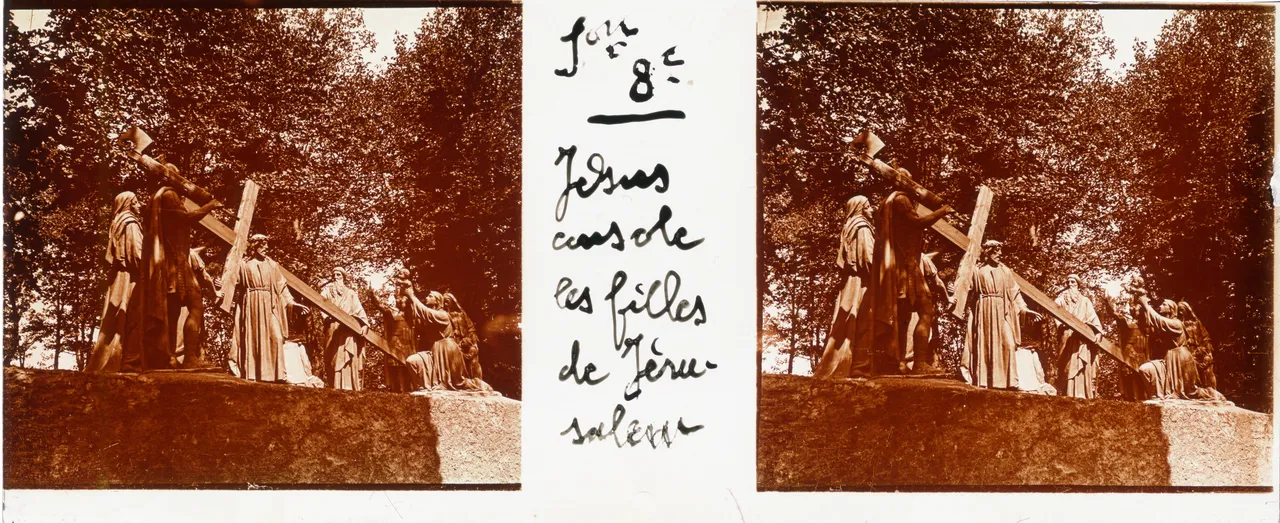 8e
Jésus
console
les filles
de Jéru-
salem